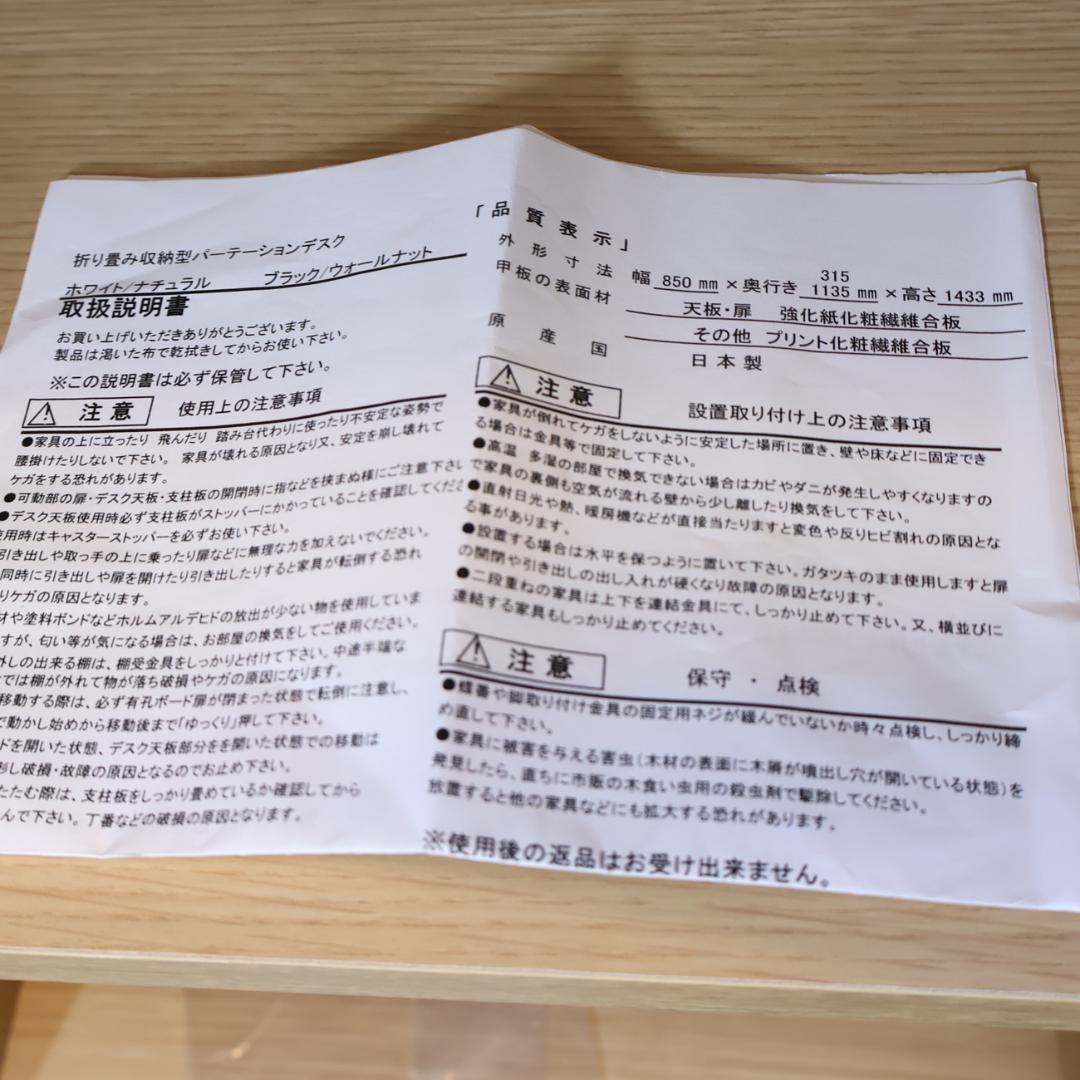 折り畳み収納型パーテーションデスク
ホワイト/ナチュラル ブラック/ウォールナット
取扱説明書
お買い上げいただきありがとうございます。
製品は渇いた布で乾拭きしてからお使い下さい。
※この説明書は必ず保管して下さい。
注意 使用上の注意事項
●家具の上に立ったり 飛んだり 踏み台代わりに使ったり不安定な姿勢で
腰掛けたりしないで下さい。 家具が壊れる原因となり又、安定を崩し壊れて
ケガをする恐れがあります。
●可動部の扉・デスク天板・支柱板の開閉時に指などを挟まぬ様にご注意下さい
●デスク天板使用時必ず支柱板がストッパーにかかっていることを確認してくださ
使用時はキャスターストッパーを必ずお使い下さい。
引き出しや取っ手の上に乗ったり扉などに無理な力を加えないでください。
同時に引き出しや扉を開けたり引き出したりすると家具が転倒する恐れ
りケガの原因となります。
材や塗料ボンドなどホルムアルデヒドの放出が少ない物を使用していま
すが、匂い等が気になる場合は、お部屋の換気をしてご使用ください。
外しの出来る棚は、棚受金具をしっかりと付けて下さい。中途半端な
では棚が外れて物が落ち破損やケガの原因になります。
移動する際は、必ず有孔ボード扉が閉まった状態で転倒に注意し、
で動かし始めから移動後まで「ゆっくり」押して下さい。
ドを開いた状態、デスク天板部分をを開いた状態での移動は
形し破損・故障の原因となるのでお止め下さい。
たたむ際は、支柱板をしっかり畳めているか確認してから
んで下さい。丁番などの破損の原因となります。
「品質表示」
外形寸法 幅 850 mm ×奥行き 315 1135 mm ×高さ 1433 mm
甲板の表面材 天板・扉 強化紙化粧繊維合板
その他 プリント化粧繊維合板
原産国 日本製
注意 設置取り付け上の注意事項
●家具が倒れてケガをしないように安定した場所に置き、壁や床などに固定でき
る場合は金具等で固定して下さい。
●高温 多湿の部屋で換気できない場合はカビやダニが発生しやすくなりますの
で家具の裏側も空気が流れる壁から少し離したり換気をして下さい。
●直射日光や熱、暖房機などが直接当たりますと変色や反りヒビ割れの原因とな
る事があります。
●設置する場合は水平を保つように置いて下さい。ガタツキのまま使用しますと扉
の開閉や引き出しの出し入れが硬くなり故障の原因となります。
●二段重ねの家具は上下を連結金具にて、しっかり止めて下さい。又、横並びに
連結する家具もしっかり止めてください。
注意 保守・点検
●蝶番や脚取り付け金具の固定用ネジが緩んでいないか時々点検し、しっかり締
め直して下さい。
●家具に被害を与える害虫(木材の表面に木屑が噴出し穴が開いている状態)を
発見したら、直ちに市販の木食い虫用の殺虫剤で駆除してください。
放置すると他の家具などにも拡大する恐れがあります。
※使用後の返品はお受け出来ません。